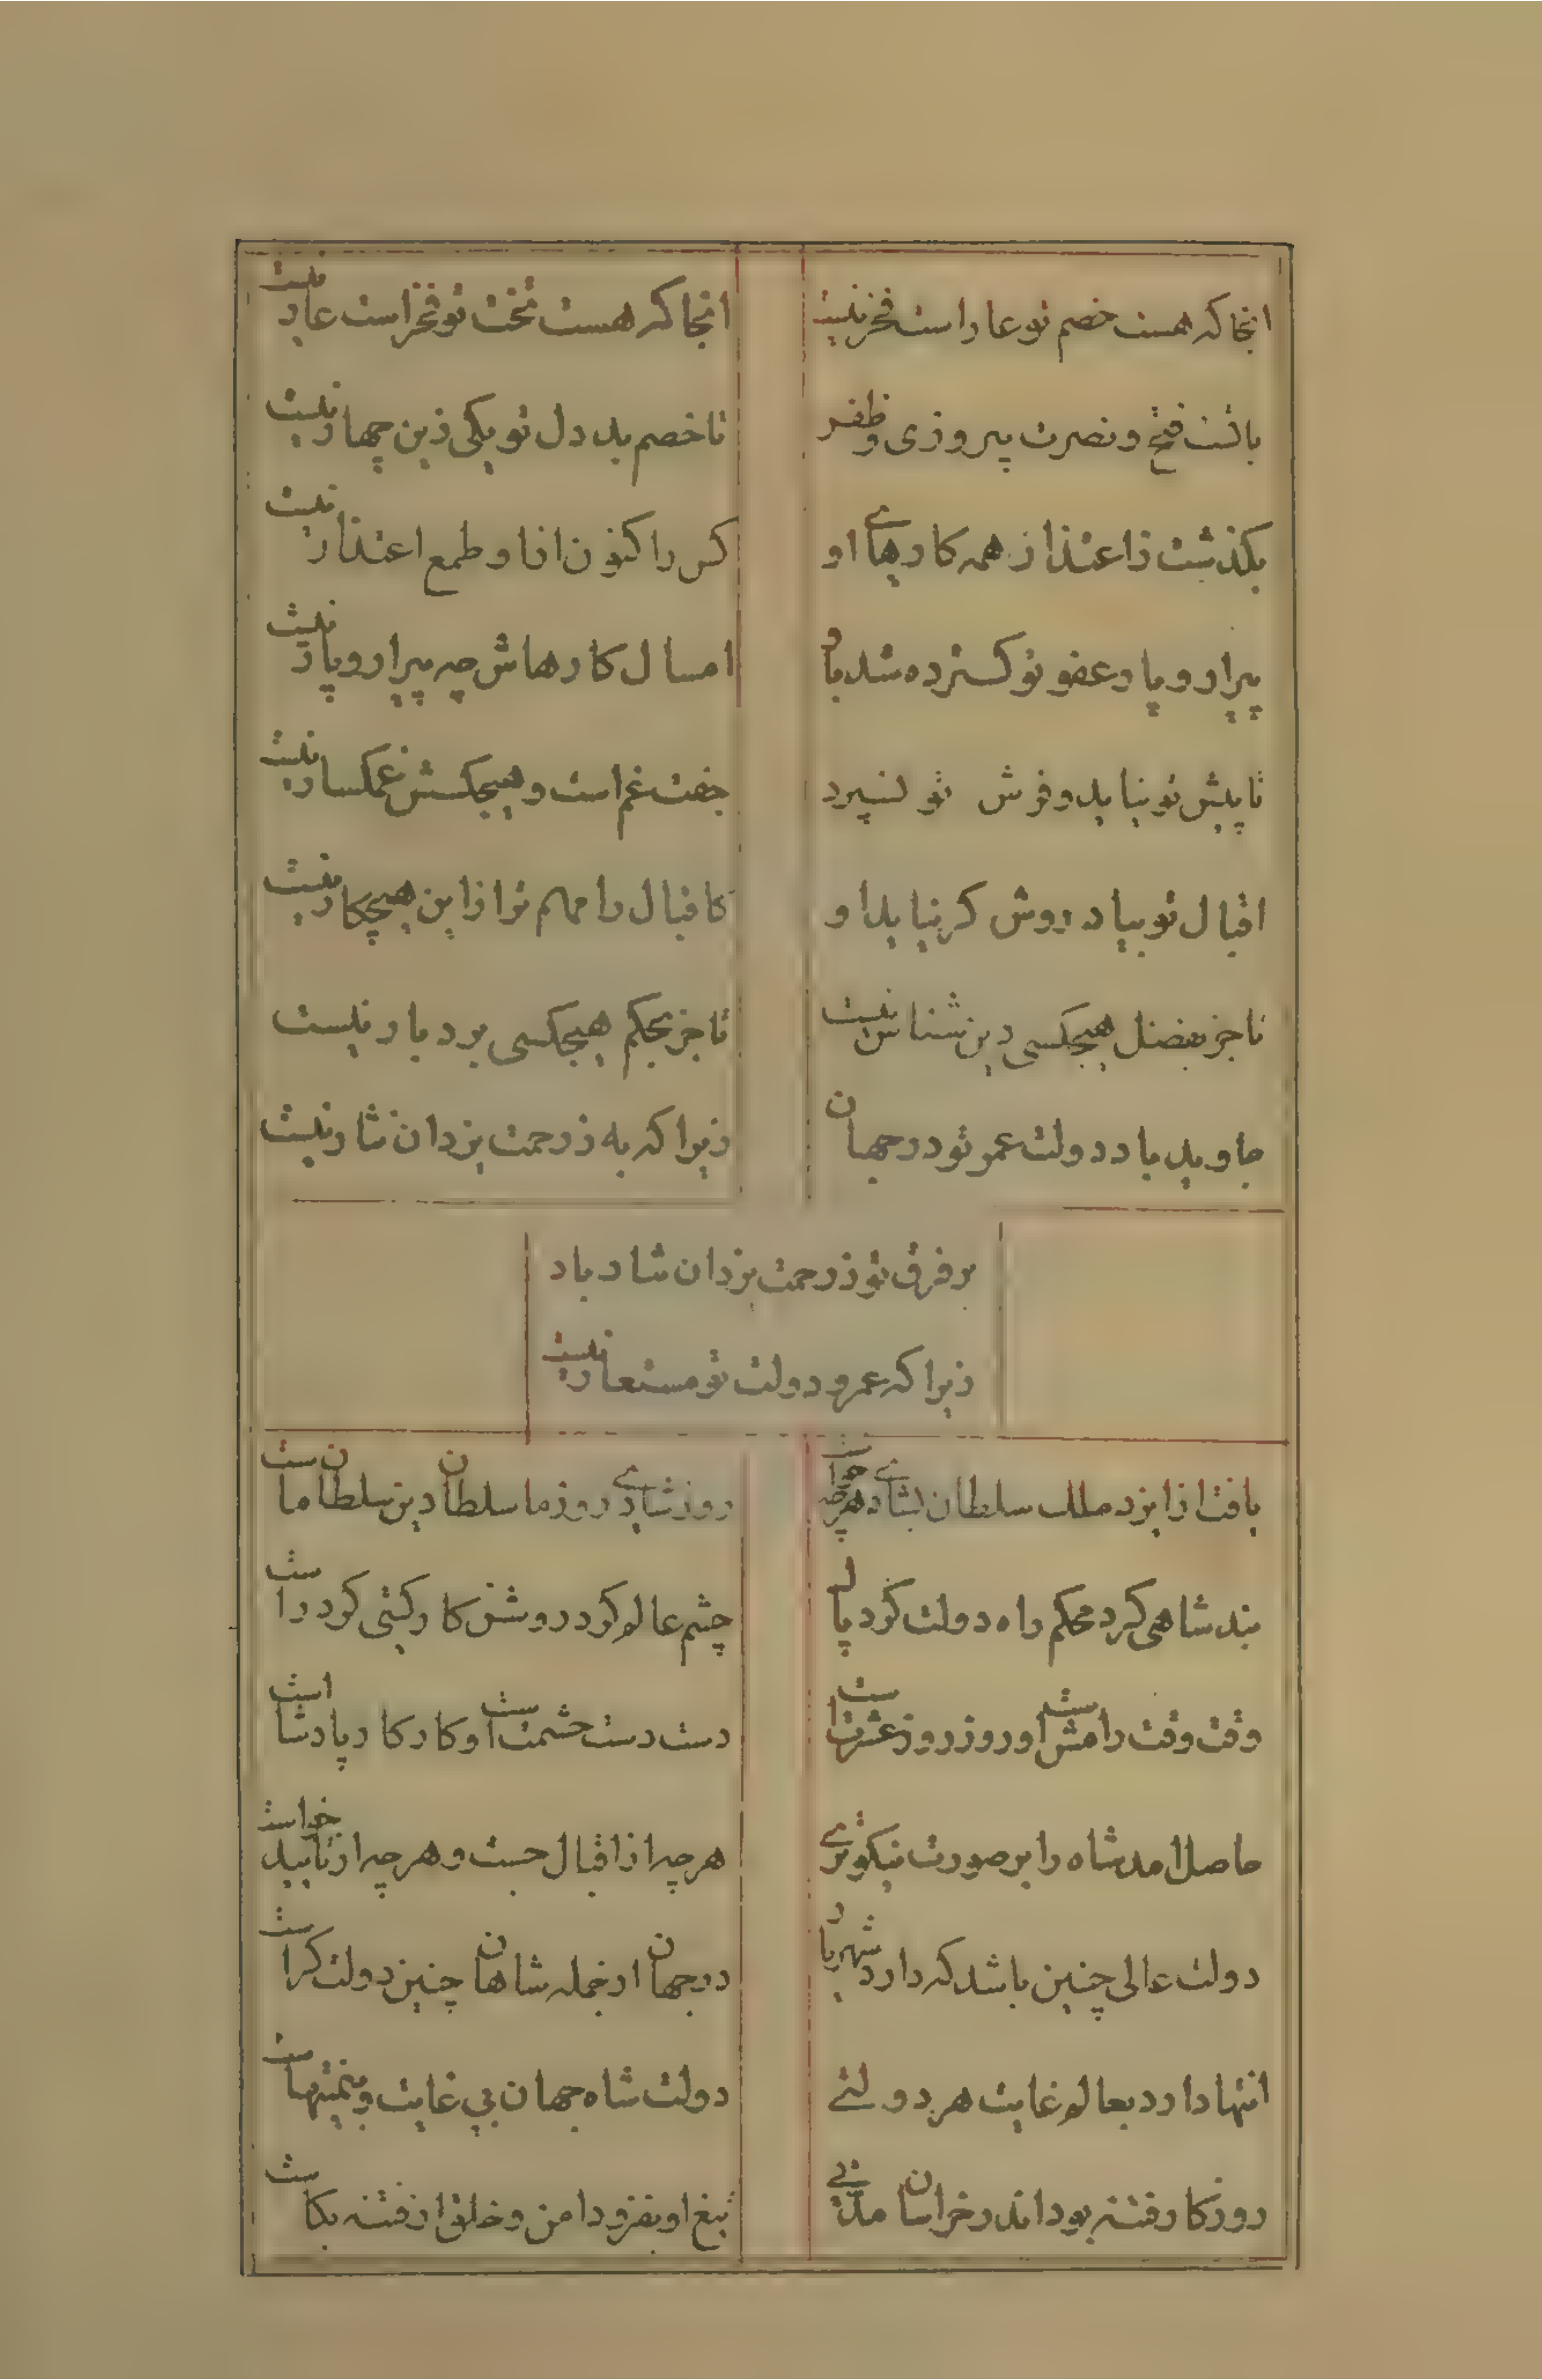 انجا که هست خصم تو عار است فخر نیست
انجا که هست تخت تو فخر است عار نیست
با تست فتح و نصرت پیروزی و ظفر
تا خصم بد دل تو یکی زین چهار نیست
بکذشت ز اعتذار همه کارهای او
کس را کنون ازا و طمع اعتذار نیست
پیرار و پار عفو تو کسترده شد بار
امسال کارهاش چه پیرار و پار نیست
تا پیش تو نیاید و فرش تو نسپرد
جفت غم است و هیچکسش غمکسار نیست
اقبال تو بیاردوش کر نیاید او
کاقبال را مهم تر از این هیچکار نیست
تا جز بفضل هیچکسی دین شناس نیست
تا جز بحکم هیچکسی بردبار نیست
جاوید باد دولت عمر تو در جهان
زیرا که به ز رحمت یزدان نثار نیست
بر فرق تو ز رحمت یزدان نثار باد
زیرا که عمر و دولت تو مستعار نیست
یافت از ایزد ملک سلطان بشادی هرچه خواست
روز شادی روز ما سلطان دین سلطان ماست
بند شاهی کرد محکم راه دولت کرد پال
چشم عالم کرد روشن کار کیتی کرد راست
وقت وقت رامش است و روز روز عشرتست
دست دست حشمت است و کار کار پادشاست
حاصل امد شاه را بر صورت نیکوتری
هر چه از اقبال جست و هر چه از تایید خواست
دولت عالی چنین باشد که دارد شهریار
در جهان از جمله شاهان چنین دولت کراست
انتها دارد بعالم غایت هر دولتی
دولت شاه جهان بی غایت و بی منتهاست
روزکار فتنه بود اندر خراسان مدتی
تیغ او بفزود امن و خلق از فتنه بکاست